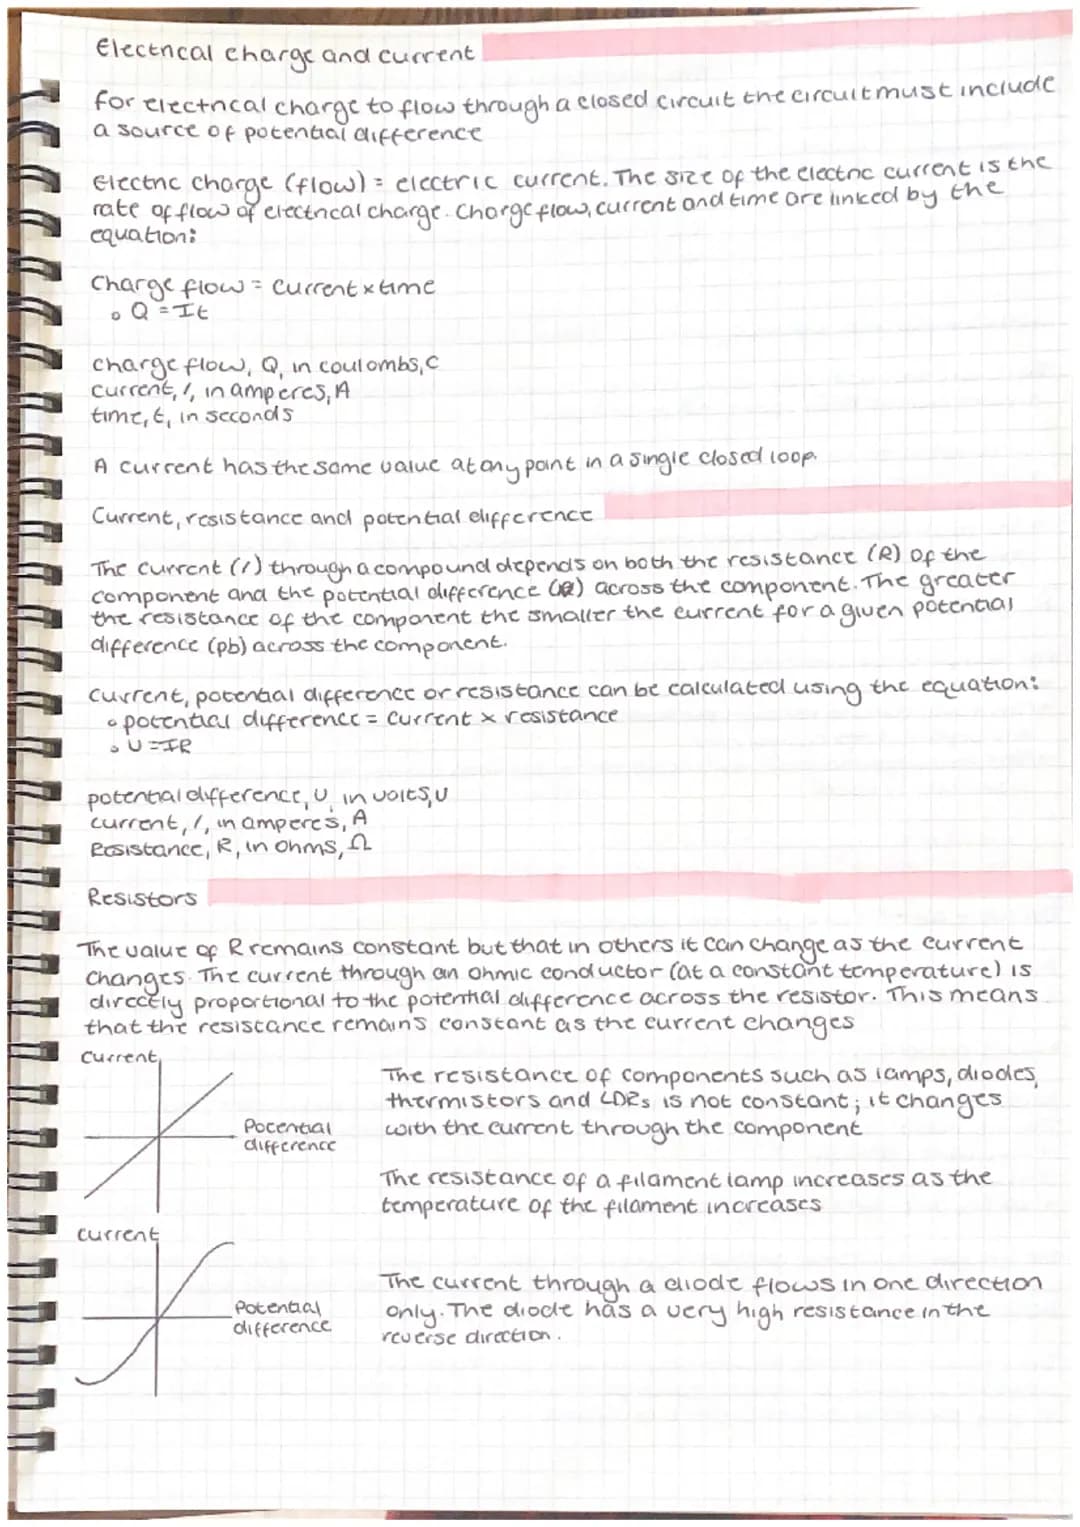 Electrical charge and current
for electrical charge to flow through a closed circuit the circuit must include
a source of potential difference
Electric charge (flow) = electric current. The size of the electric current is the
rate of flow of electrical charge. Charge flow, current and time are linked by the
equation:
Charge flow = Current x time
• Q = It
charge flow, Q, in coulombs, C
current, I, in amperes, A
time, t, in seconds
A current has the same value at any point in a single closed loop.
Current, resistance and potential difference
The current (I) through a compound depends on both the resistance (R) of the
component and the potential difference across the component. The greater
the resistance of the component the smaller the current for a given potential
difference (pb) across the component.
Current, potential difference or resistance can be calculated using the equation:
• potential difference = Current x resistance
• V = IR
potential difference, V, in volts, V
current, I, in amperes, A
Resistance, R, in ohms, Ω
Resistors
The value of R remains constant but that in others it can change as the current
changes. The current through an ohmic conductor (at a constant temperature) is
directly proportional to the potential difference across the resistor. This means
that the resistance remains constant as the current changes
Current
Potential
difference
The resistance of components such as lamps, diodes,
thermistors and LDRs is not constant; it changes
with the current through the component
The resistance of a filament lamp increases as the
temperature of the filament increases
Current
Potential
difference
The current through a diode flows in one direction
only. The diode has a very high resistance in the
reverse direction.